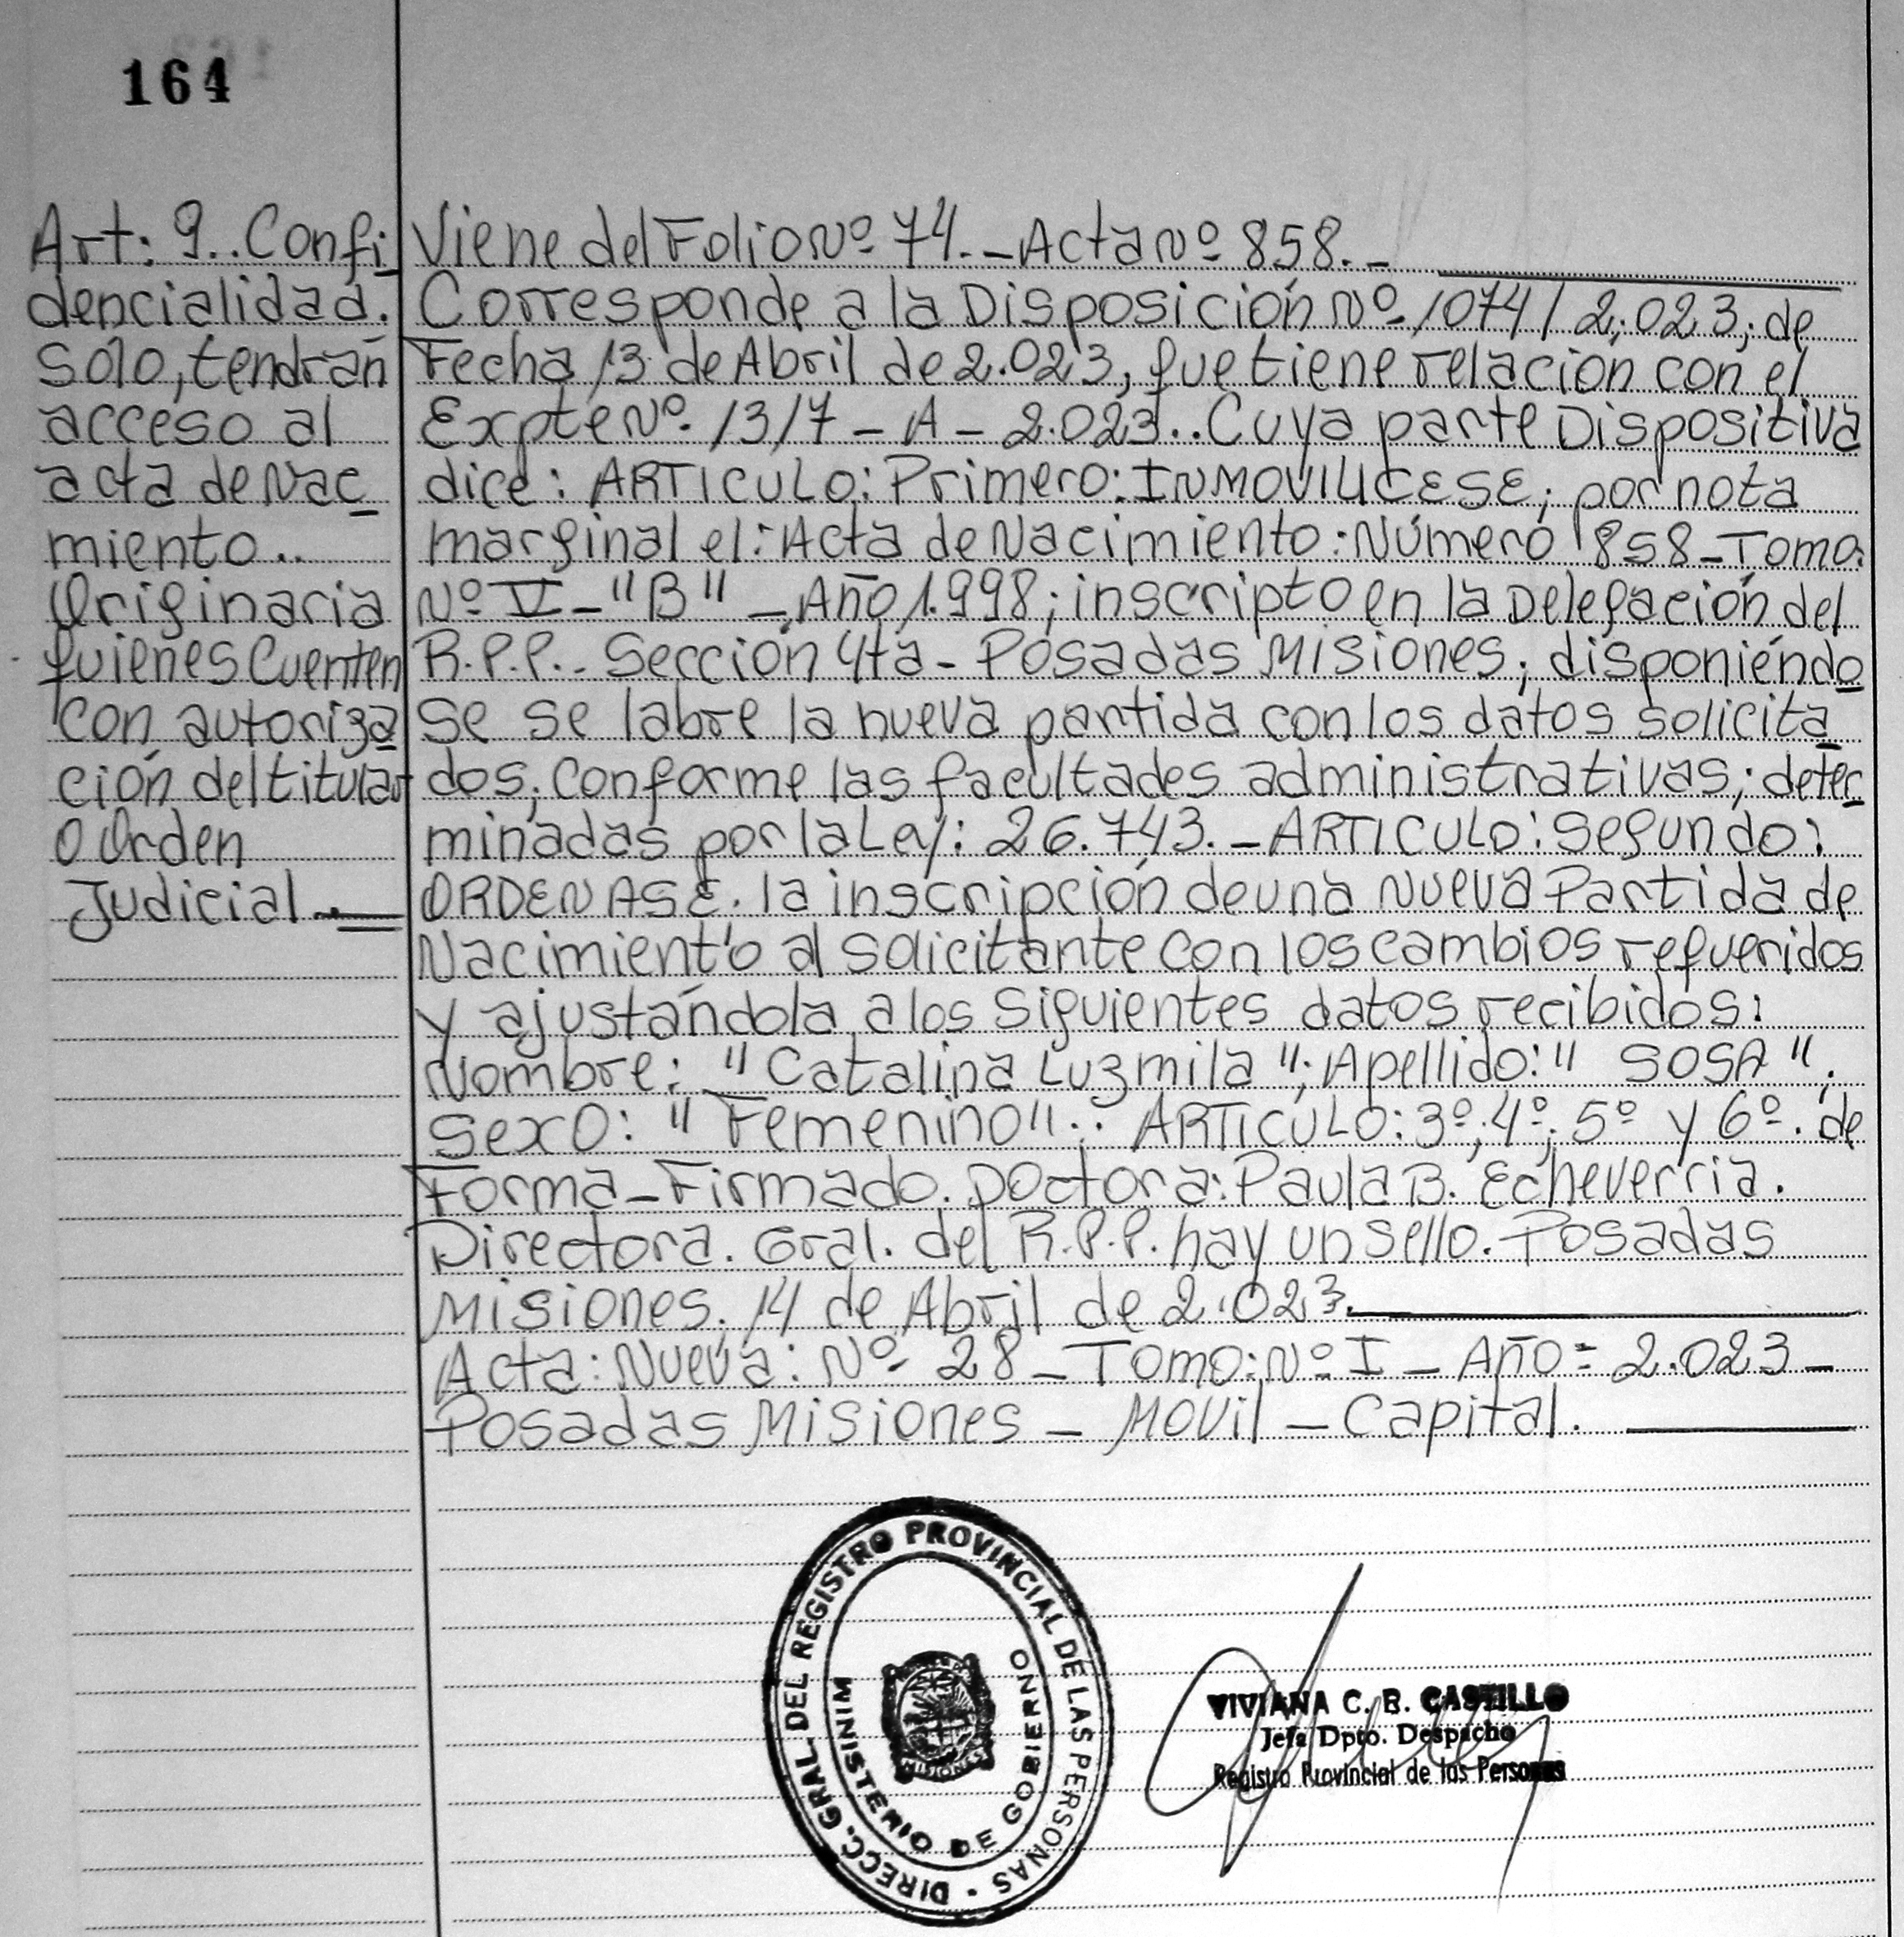 164
Art: 9.. Confi
dencialidad.
Sólo, tendrán
acceso al
acta de Nac
miento..
Originaria
quienes Cuenten
con autoriza
ción del titular
O Orden
Judicial.
Viene del Folio Nº 74.-Acta Nº 858.-
Corresponde a la Disposición Nº 1074/2.023; de
Fecha 13 de Abril de 2.023, que tiene relación con el
Expte Nº 1317-A-2.023.. Cuya parte Dispositiva
dice: ARTICULO: Primero: INMOVILICESE; por nota
marginal el: Acta de Nacimiento: Número 858-Tomo:
Nº V-"B"-Año 1.998; inscripto en la Delegación del
R.P.P.- Sección 4ta- Posadas Misiones; disponiéndo
se se labre la nueva partida con los datos solicita
dos; conforme las facultades administrativas; deter
minadas por la Ley: 26.743.-ARTICULO: Segundo:
ORDENASE. la inscripción de una Nueva Partida de
Nacimiento al solicitante con los cambios requeridos
y ajustándola a los siguientes datos recibidos:
Nombre: "Catalina Luzmila"; Apellido: "SOSA";
Sexo: "Femenino".. ARTICULO: 3º; 4º; 5º y 6º. de
Forma-Firmado. Doctora: Paula B. Echeverria.
Directora. Gral. del R.P.P. hay un sello. Posadas
Misiones. 14 de Abril de 2.023.
Acta: Nueva: Nº 28-Tomo: Nº I-Año= 2.023-
Posadas Misiones-Movil-Capital.
DIRECC. GRAL. DEL REGISTRO PROVINCIAL DE LAS PERSONAS
MINISTERIO DE GOBIERNO
MISIONES
VIVIANA C. B. CASTILLO
Jefa Dpto. Despacho
Registro Provincial de las Personas